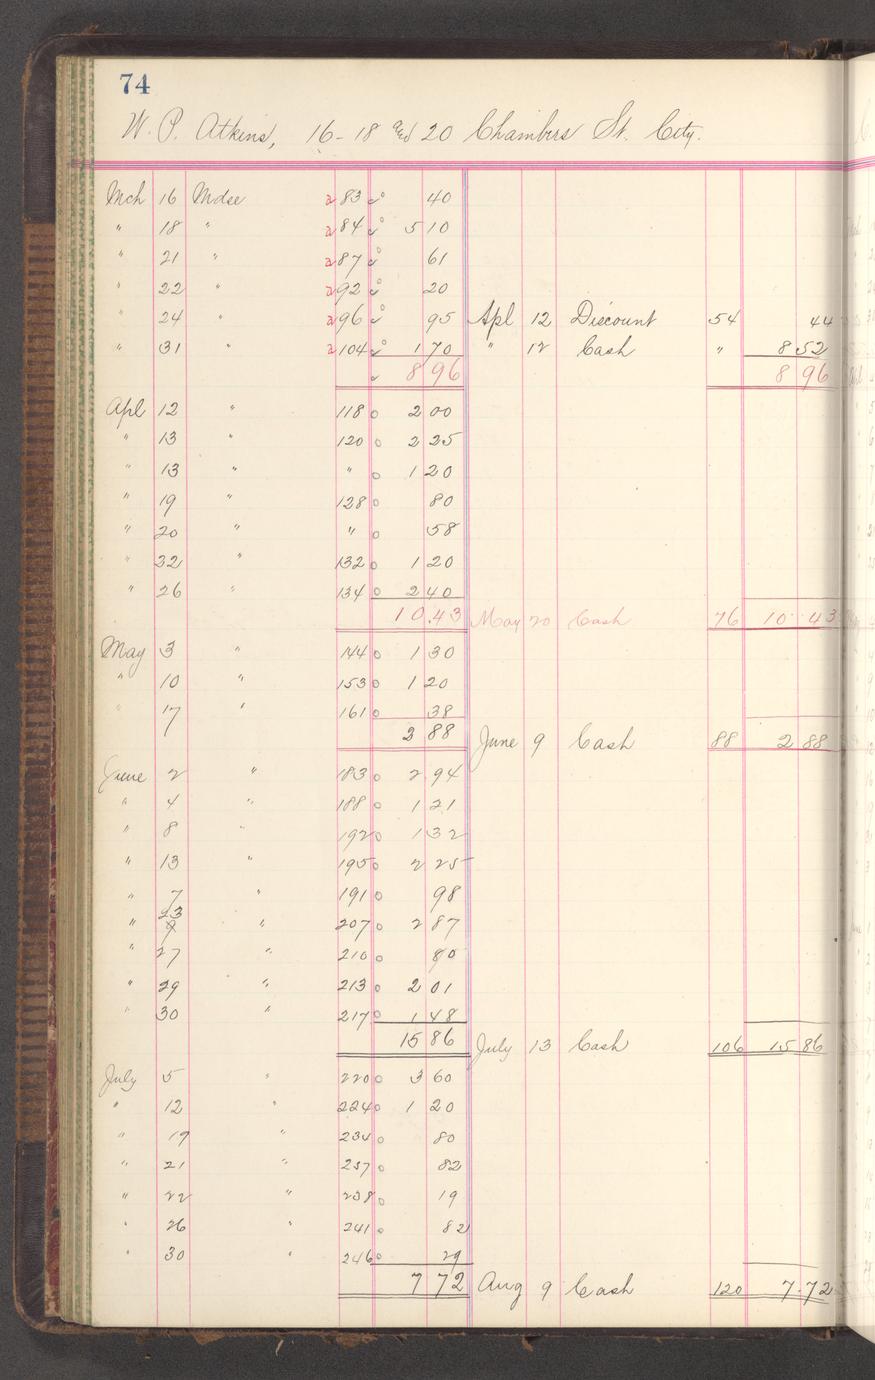 74
W. P. Atkins, 16-18 and 20 Chambers St. City.
Mch 16 Mdse a 83 40
" 18 " a 84 5 10
" 21 " a 87 61
" 22 " a 92 20
" 24 " a 96 95 Apl 12 Discount 54 44
" 31 " a 104 1 70 " 12 Cash " 8 52
8 96 8 96
Apl 12 " 118 2 00
" 13 " 120 2 25
" 13 " " 1 20
" 19 " 128 80
" 20 " " 58
" 22 " 132 1 20
" 26 " 134 2 40
10.43 May 20 Cash 76 10 43
May 3 " 144 1 30
" 10 " 153 1 20
" 17 " 161 38
2 88 June 9 Cash 88 2 88
June 2 " 183 2 94
" 4 " 188 1 21
" 8 " 192 1 32
" 13 " 195 2 25
" 7 " 191 98
" 23 " 207 2 87
" 27 " 210 80
" 29 " 213 2 01
" 30 " 217 1 48
15 86 July 13 Cash 106 15 86
July 5 " 220 3 60
" 12 " 224 1 20
" 19 " 234 80
" 21 " 237 82
" 22 " 238 19
" 26 " 241 82
" 30 " 246 29
7 72 Aug 9 Cash 120 7.72